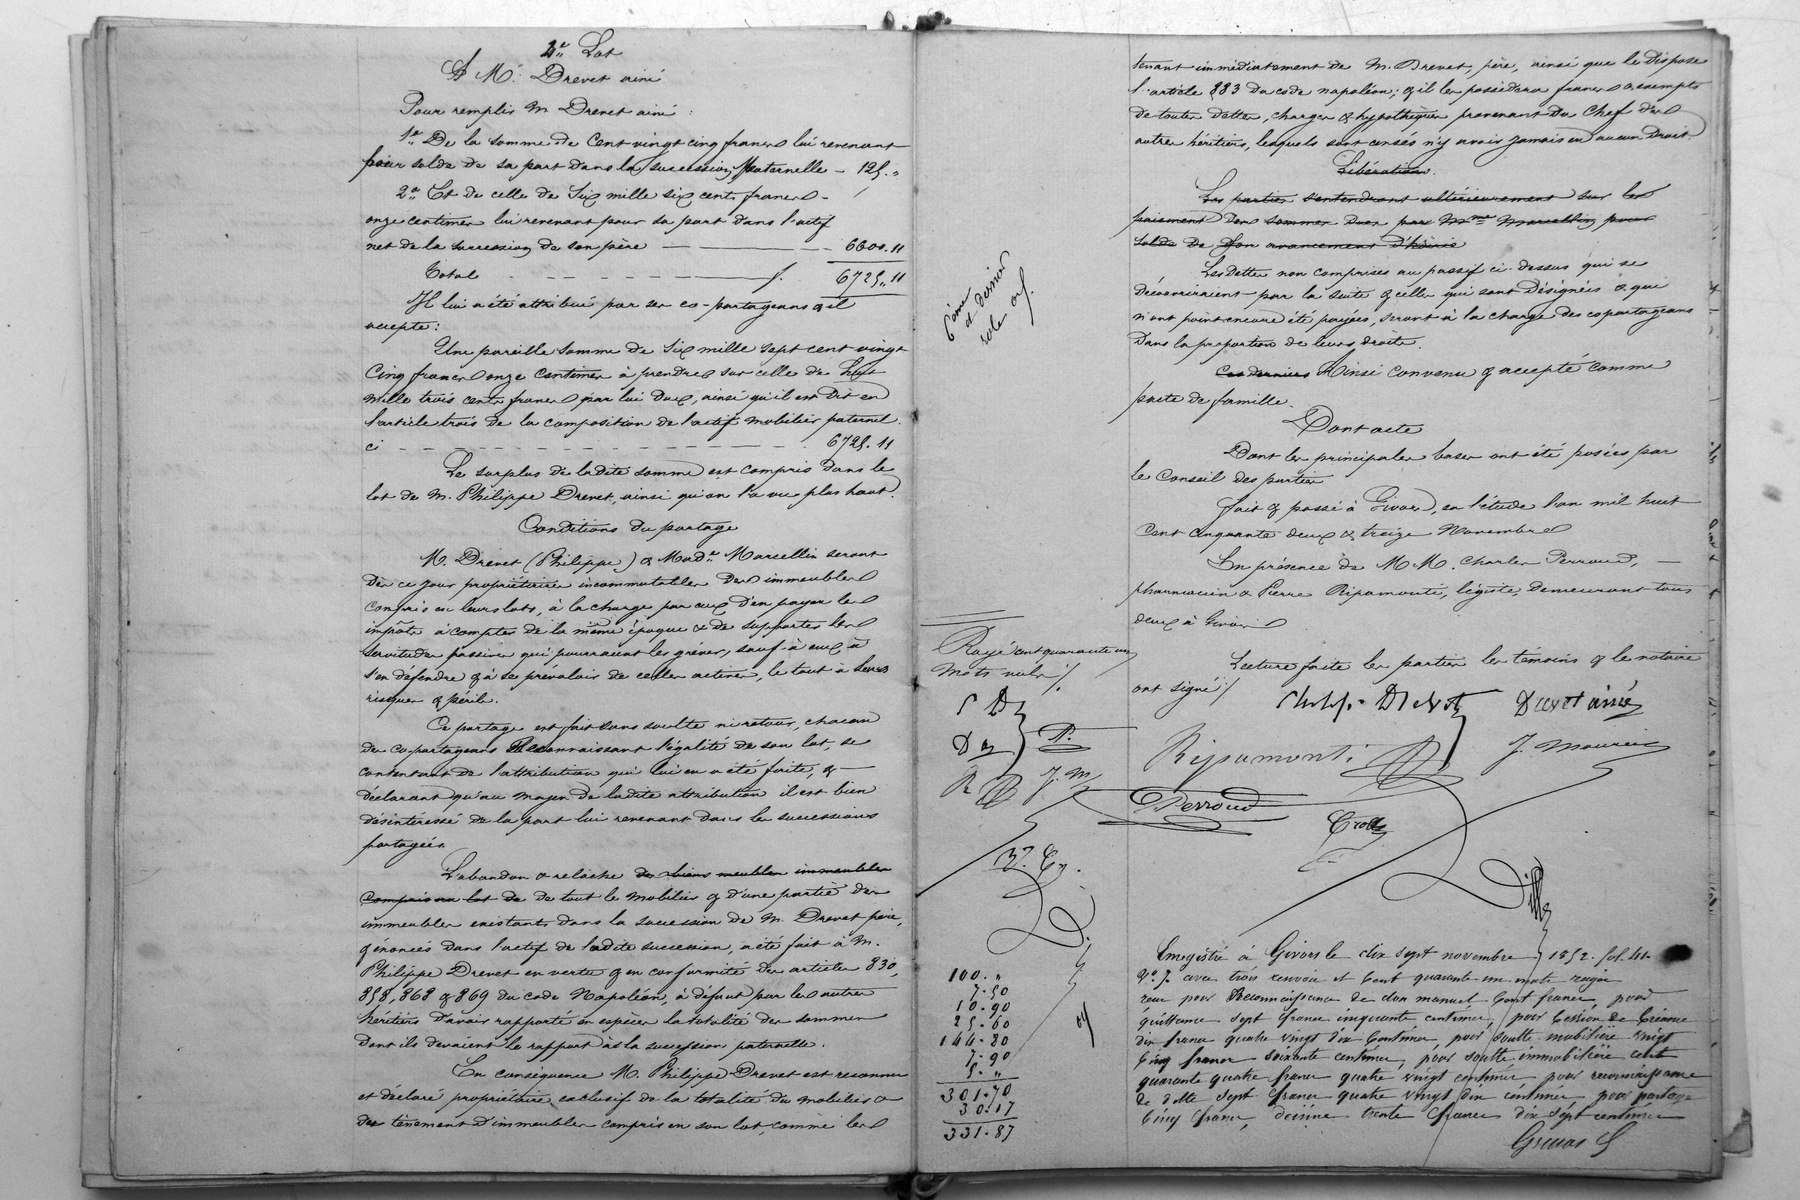 Lot
A M. Drevet ainé
Pour remplir M. Drevet ainé :
1° De la somme de Cent vingt cinq francs lui revenant
pour solde de sa part dans la succession maternelle – 125. "
2° Et de celle de Six mille six cents francs
onze centimes lui revenant pour sa part dans l'actif
net de la succession de son père — 6600.11
Total f. 6725.11
Il lui a été attribué par ses co-partageans & il
accepte :
Une pareille somme de Six mille sept cent vingt
Cinq francs onze Centimes à prendre sur celle de huit
mille trois cents francs par lui due, ainsi qu'il est dit en
l'article trois de la composition de l'actif mobilier paternel.
ci 6725.11
Le surplus de ladite somme est compris dans le
lot de M. Philippe Drevet, ainsi qu'on l'a vu plus haut.
Conditions du partage
M. Drevet (Philippe) & Mad.e Marcellin seront
dès ce jour propriétaires incommutables des immeubles
compris en leurs lots, à la charge par eux d'en payer les
impôts à compter de la même époque & de supporter les
servitudes passives qui pourraient les grever, sauf à eux à
s'en défendre & à se prévaloir de celles actives, le tout à leurs
risques & périls.
Ce partage est fait sans soulte ni retour, chacun
des co-partageans Reconnaissant l'égalité de son lot, se
contentant de l'attribution qui lui en a été faite, &
déclarant qu'au moyen de ladite attribution il est bien
désintéressé de la part lui revenant dans les successions
partagées.
L'abandon & relâche des biens meubles immeubles
compris au lot de de tout le mobilier & d'une partie des
immeubles existant dans la succession de M. Drevet père,
énoncés dans l'actif de ladite succession, a été fait à M.
Philippe Drevet en vertu & en conformité des articles 830,
858, 868 & 869 du code Napoléon, à défaut par les autres
héritiers d'avoir rapporté en espèces la totalité des sommes
dont ils devaient le rapport à la succession paternelle.
En conséquence M. Philippe Drevet est reconnu
et déclaré propriétaire exclusif de la totalité du mobilier &
des tènement d'immeubles compris en son lot, comme les
tenant immédiatement de M. Drevet, père, ainsi que le dispose
l'article 883 du code napoléon; & il les possèdera francs & exempts
de toutes dettes, charges & hypothèques provenant du Chef des
autres héritiers, lesquels sont censés n'y avoir jamais eu aucun droit.
Libération
Les parties s'entendront ultérieurement sur les
paiement des sommes dues par Mme Marcellin pour
solde de son avancement d'hoirie
Les dettes non comprises au passif ci-dessus qui se
découvriraient par la suite & celles qui sont désignées & qui
n'ont point encore été payées, seront à la charge des copartageans
dans la proportion de leurs droits.
Ces derniers Ainsi convenu & accepté comme
pacte de famille.
Dont acte
Dont les principales bases ont été posées par
le Conseil des parties
Fait & passé à Givors, en l'étude l'an mil huit
cent cinquante deux & treize Novembre
En présence de M.M. Charles Perroud, —
pharmacien & Pierre Ripamonti, légiste, demeurant tous
deux à Givors
Lecture faite les parties les témoins & le notaire
ont signé /
6ème
et dernier
rôle
Rayé cent quarante un
Mots nuls /.
P D
D a
R
J. M
Philip. Drevet
Drevet ainé
Ripamonti
Perroud
Enregistré à Givors le dix sept novembre 1852. fol. 41.
v° 7. avec trois renvois et Cent quarante un mots rayés
reçu pour Reconnaissance de don manuel Cent francs, pour
quittance sept francs cinquante centimes, pour Cession de Créance
dix francs quatre vingt dix Centimes, pour soulte mobilière vingt
Cinq francs soixante centimes, pour soulte immobilière cent
quarante quatre francs quatre vingt centimes, pour reconnaissance
de dette sept francs quatre vingt dix centimes, pour partage
Cinq francs, décime trente francs dix sept centimes
100. "
7.50
10.90
25.60
144.80
7.90
5. "
301.70
30.17
331.87